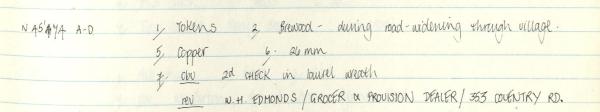 NAS'A'YA A-D 1/ Tokens 2, Brewood - during road-widening through village.
5, Copper 6. 26mm
7, obv 2d CHECK in laurel wreath
rev W.H. EDMONDS / GROCER & PROVISION DEALER / 353 COVENTRY RD.